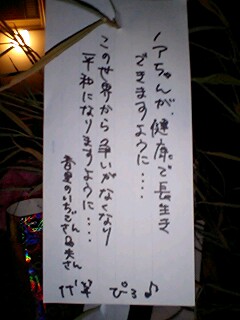 ノアちゃんが、健康で長生き
できますように・・・
この世界から争いがなくなり
平和になりますように・・・・
香里のいちごさん
ぴろ♪